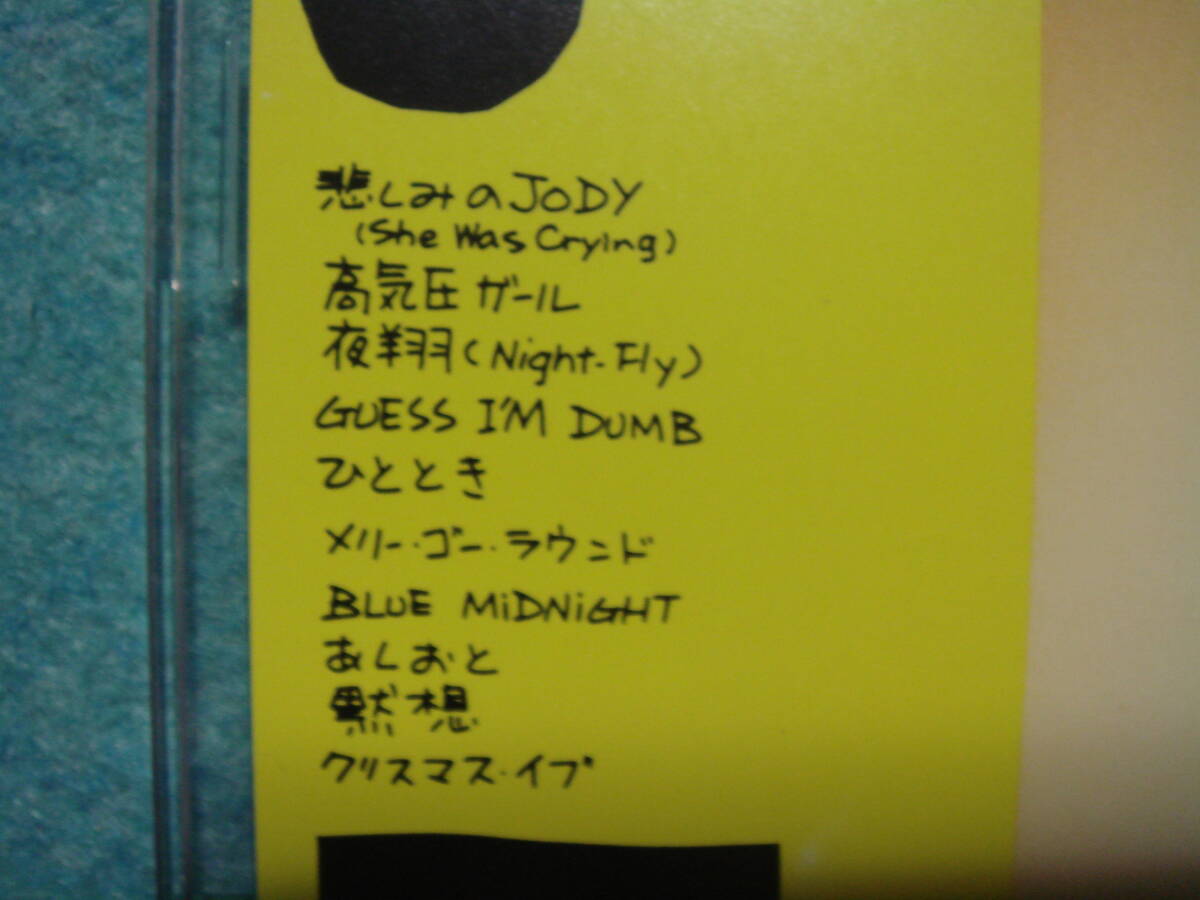 悲しみのJODY
(She Was Crying)
高気圧ガール
夜翔(Night-Fly)
GUESS I'M DUMB
ひととき
メリー・ゴー・ラウンド
BLUE MiDNiGHT
あしおと
黙想
クリスマス・イブ